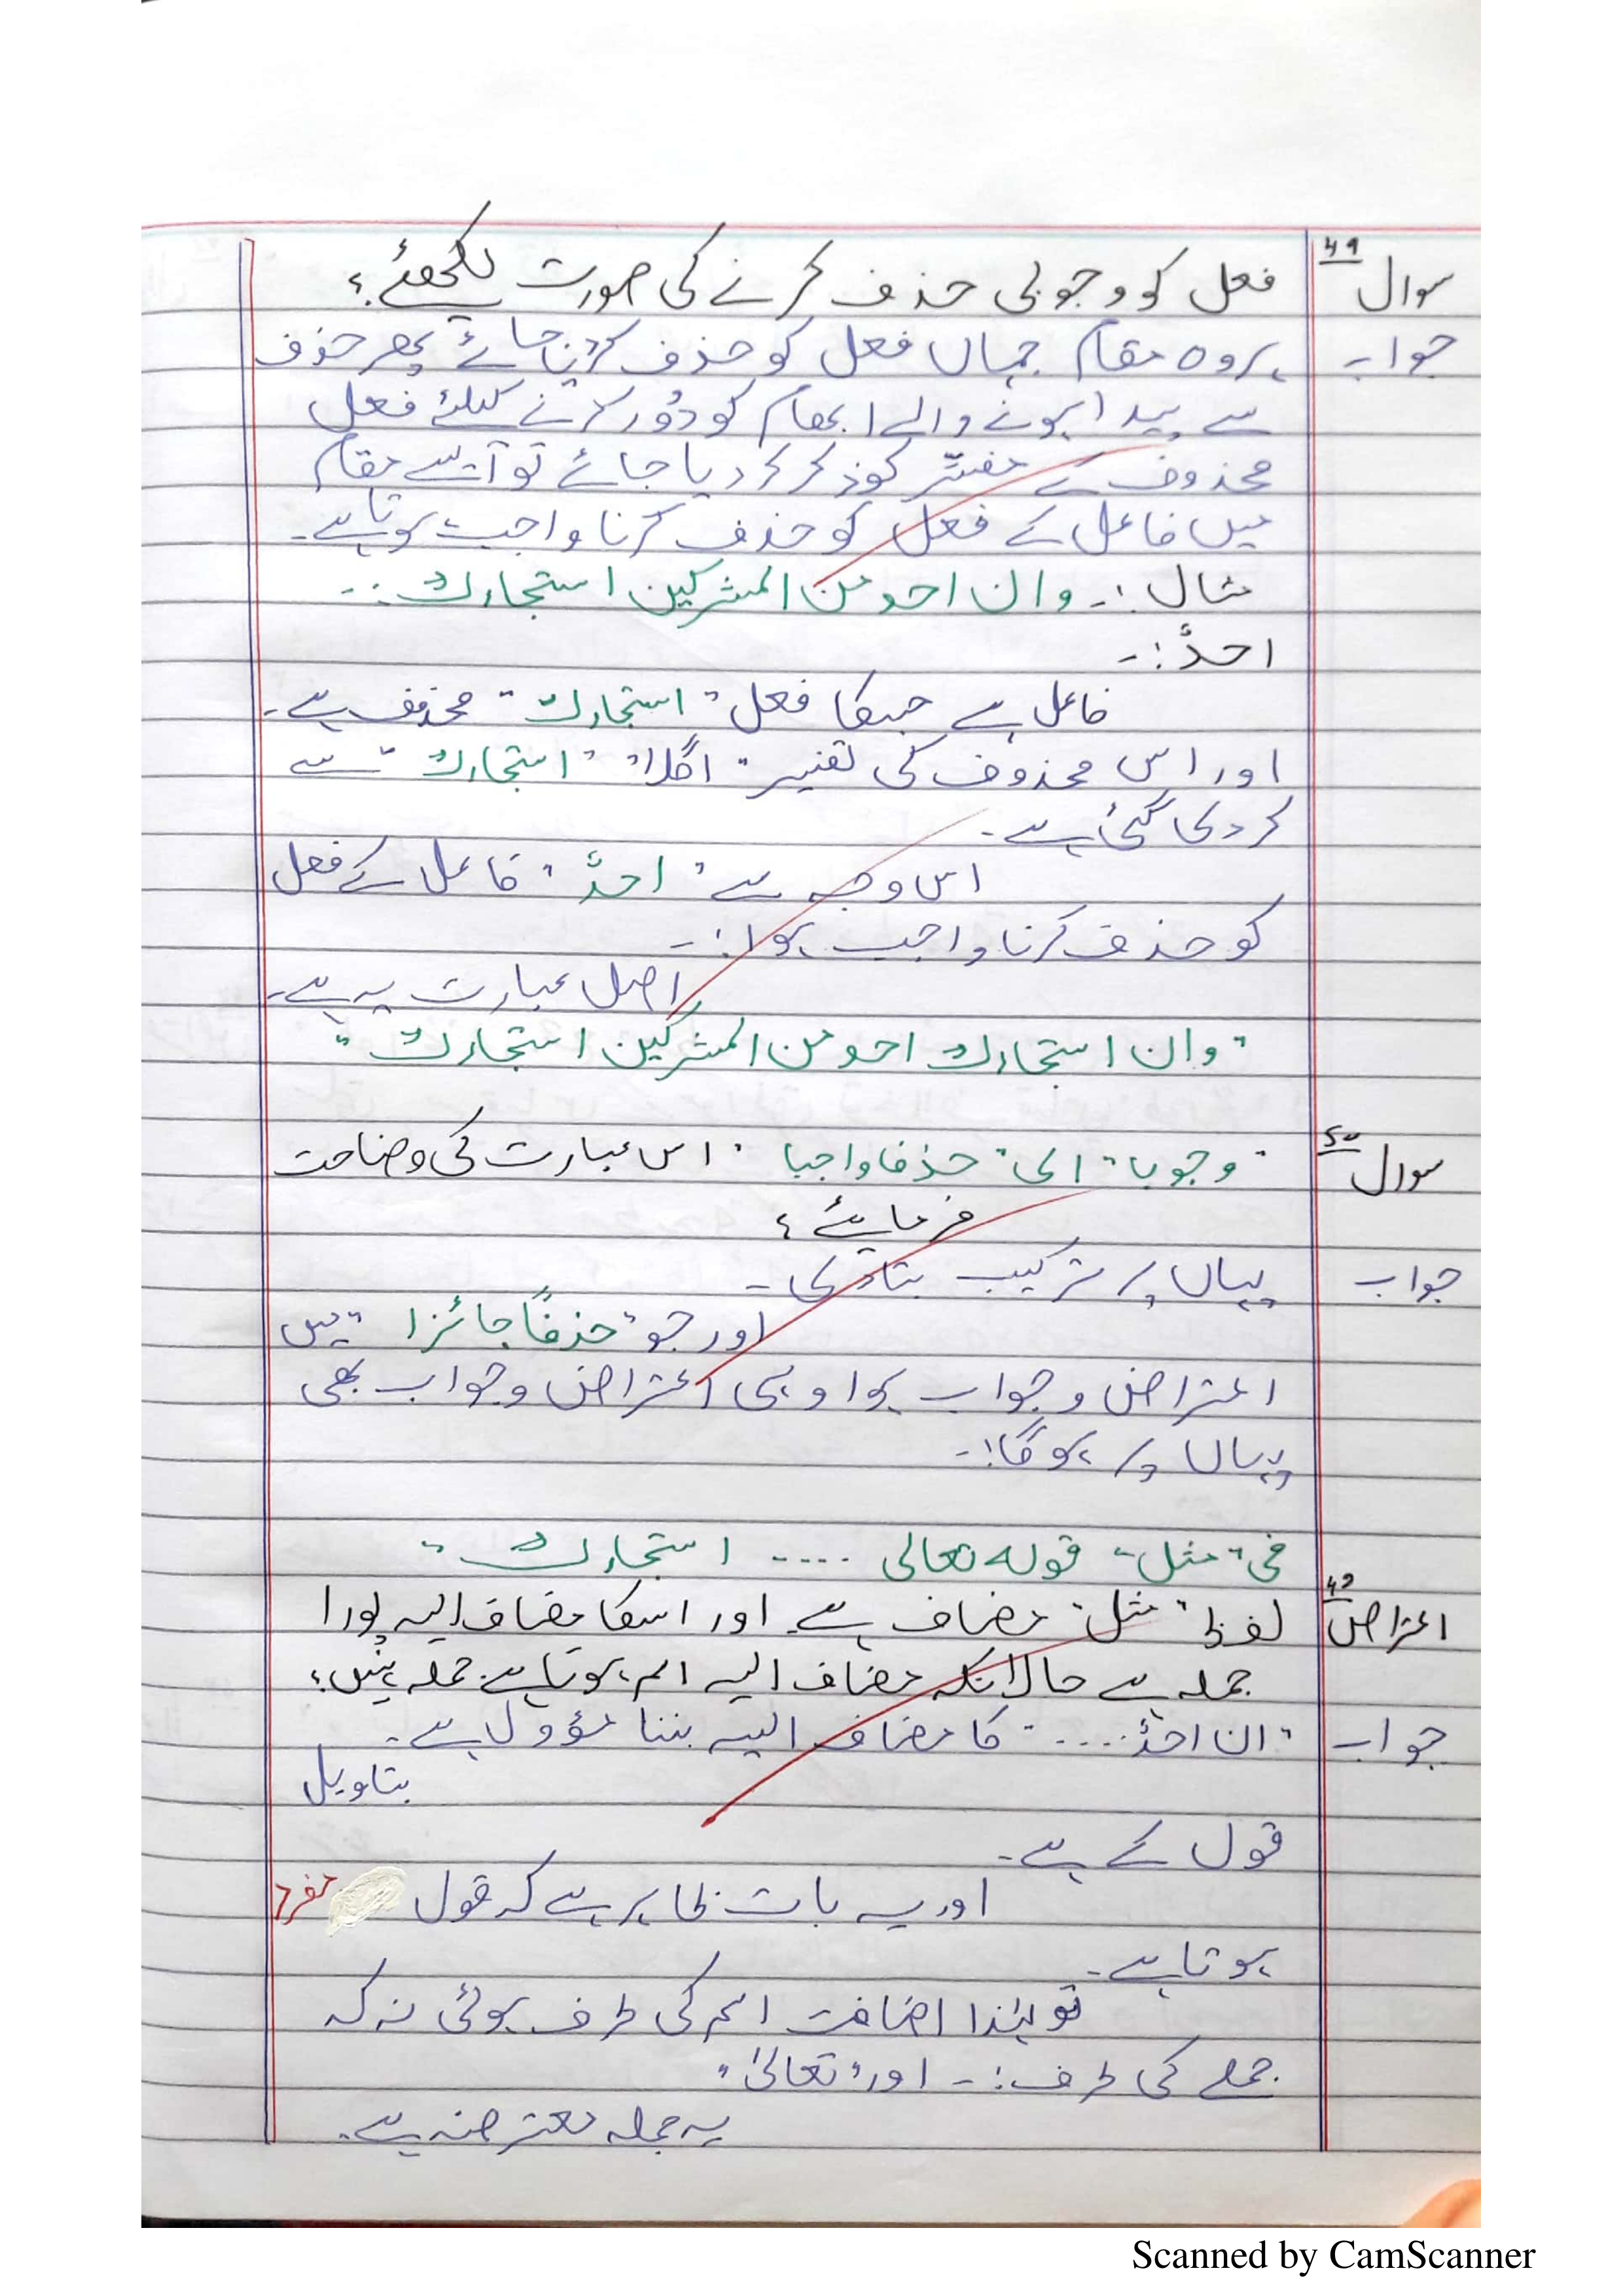 سوال ۴۹ فعل کو وجوبی حذف کرنے کی صورت لکھئے؟
جواب ہر وہ مقام جہاں فعل کو حذف کردیا جائے پھر حذف
سے پیدا ہونے والے ابھام کو دُور کرنے کیلئے فعل
محذوف کے مفسّر کو ذکر کردیا جائے تو ایسے مقام
میں فاعل کے فعل کو حذف کرنا واجب ہوتا ہے۔
مثال :۔ وان احد من المشرکین استجارك :۔
احدٌ :۔
فاعل ہے جسکا فعل "استجارك" محذوف ہے۔
اور اس محذوف کی تفسیر "اگلا" "استجارك" سے
کردی گئی ہے۔
اس وجہ سے "احدٌ" فاعل کے فعل
کو حذف کرنا واجب ہوا :۔
اصل عبارت یہ ہے۔
"وان استجارك احد من المشرکین استجارك"
سوال ۵۰ "وجوبا" ای "حذفا واجبا" اس عبارت کی وضاحت
فرمایئے؟
جواب یہاں پر ترکیب بتادی۔
اور جو "حذفًا جائزا" میں
اعتراض وجواب ہوا وہی اعتراض وجواب بھی
یہاں پر ہوگا :۔
فی "مثل" قوله تعالی .... استجارك"
اعتراض ۴۲ لفظ "مثل" مضاف ہے اور اسکا مضاف الیہ پورا
جملہ ہے حالانکہ مضاف الیہ اسم ہوتا ہے جملہ نہیں؟
جواب "ان احدٌ ...." کا مضاف الیہ بننا مؤول ہے۔
بتاویل
قول کے ہے۔
اور یہ بات ظاہر ہے کہ قول مفرد
ہوتا ہے۔
تو لہٰذا اضافت اسم کی طرف ہوئی نہ کہ
جملے کی طرف :۔ اور "تعالیٰ"
یہ جملہ معترضہ ہے۔
Scanned by CamScanner